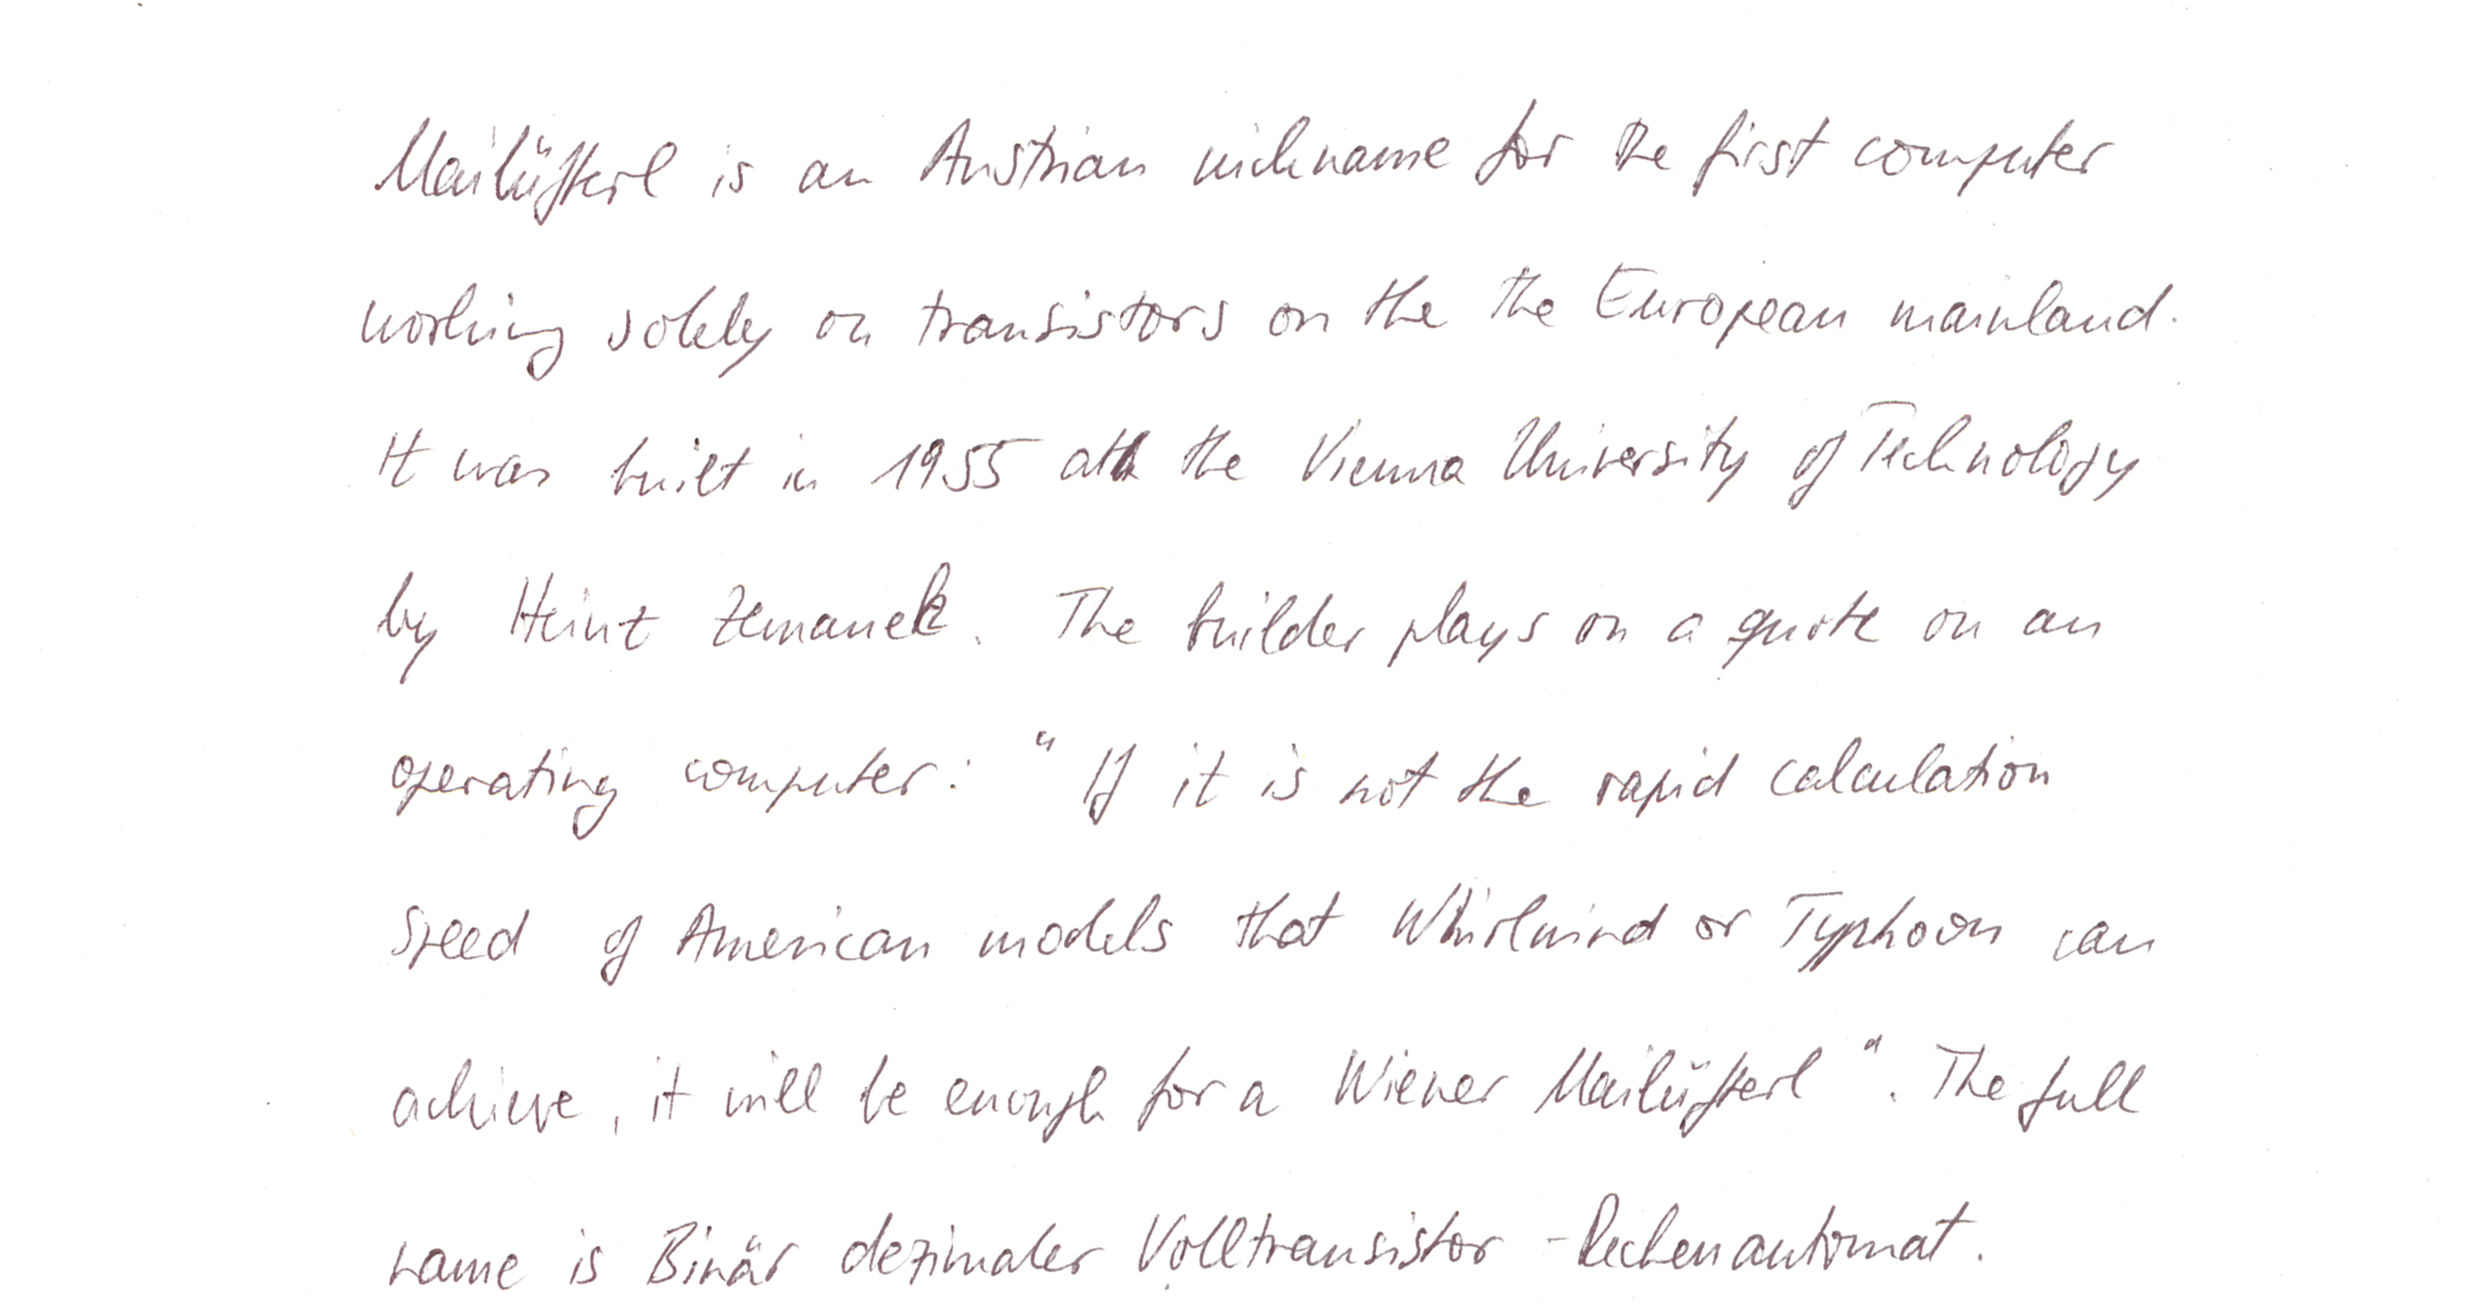 Mailüfterl is an Austrian nickname for the first computer
working solely on transistors on the the European mainland.
It was built in 1955 at the Vienna University of Technology
by Heinz Zemanek. The builder plays on a quote on an
operating computer: "If it is not the rapid calculation
speed of American models that Whirlwind or Typhoon can
achieve, it will be enough for a Wiener Mailüfterl". The full
name is Binär dezimaler Volltransistor-Rechenautomat.